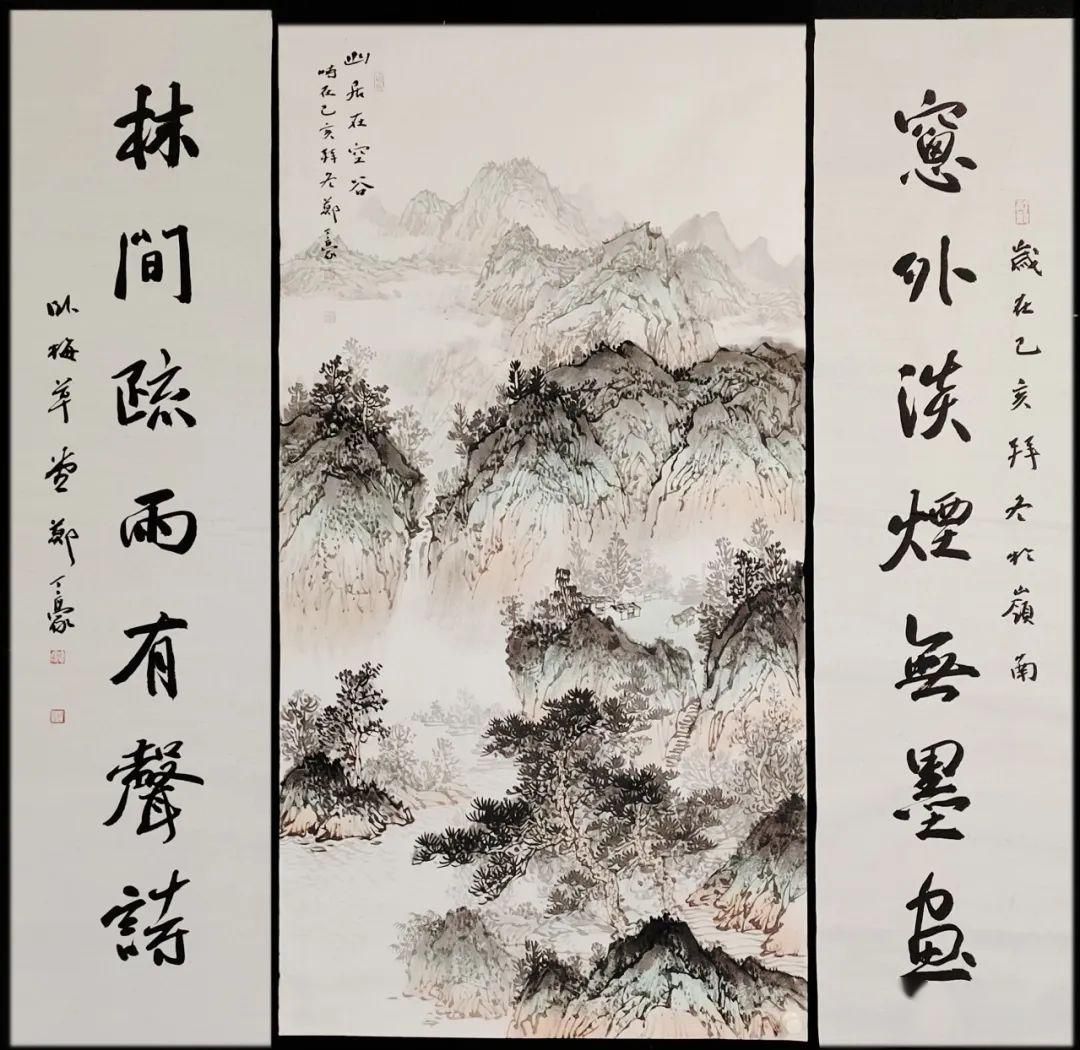 歲在己亥拜冬於嶺南
窻外淡煙無墨畫
幽居在空谷
時在己亥拜冬鄭丁豪
林間疏雨有聲詩
臥梅草堂鄭丁豪